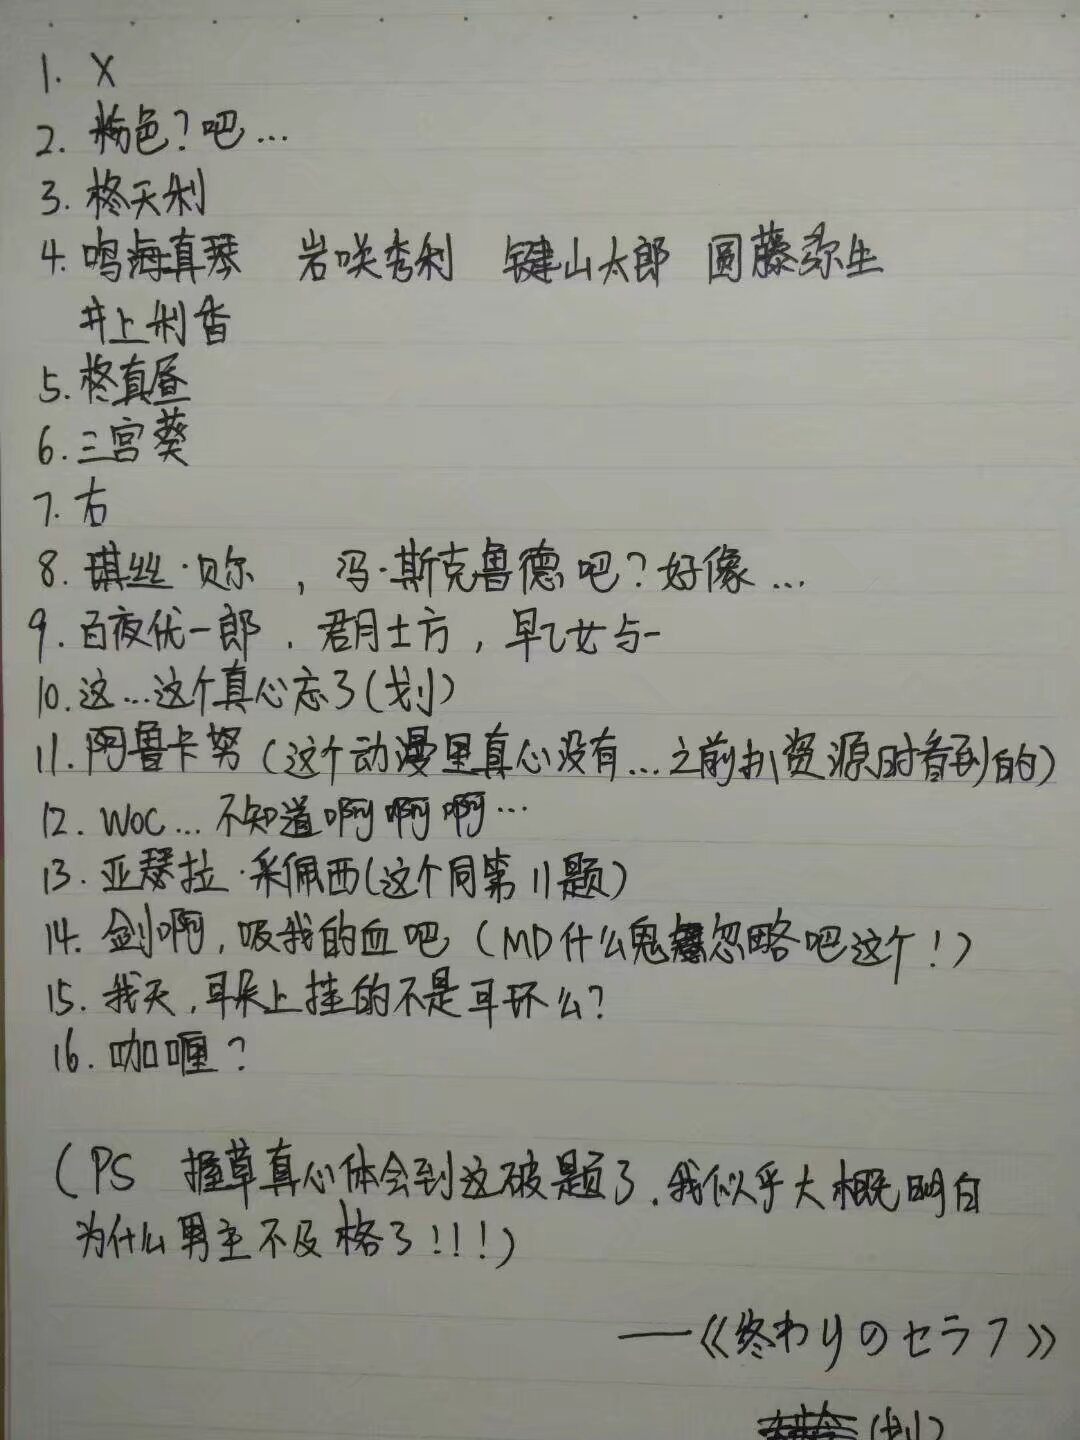 1. X
2. 粉色？吧…
3. 柊天利
4. 鸣海真琴 岩咲秀利 键山太郎 圆藤弥生
井上利香
5. 柊真昼
6. 三宫葵
7. 右
8. 琪丝·贝尔，冯·斯克鲁德吧？好像…
9. 百夜优一郎，君月士方，早乙女与一
10. 这…这个真心忘了(划)
11. 阿鲁卡努(这个动漫里真心没有…之前扒资源时看到的)
12. WOC…不知道啊啊啊…
13. 亚瑟拉·采佩西(这个同第11题)
14. 剑啊，吸我的血吧(MD什么鬼忽略吧这个！)
15. 我天，耳朵上挂的不是耳环么？
16. 咖喱？
(PS 握草真心体会到这破题了，我似乎大概明白
为什么男主不及格了！！！)
——《終わりのセラフ》
(划)